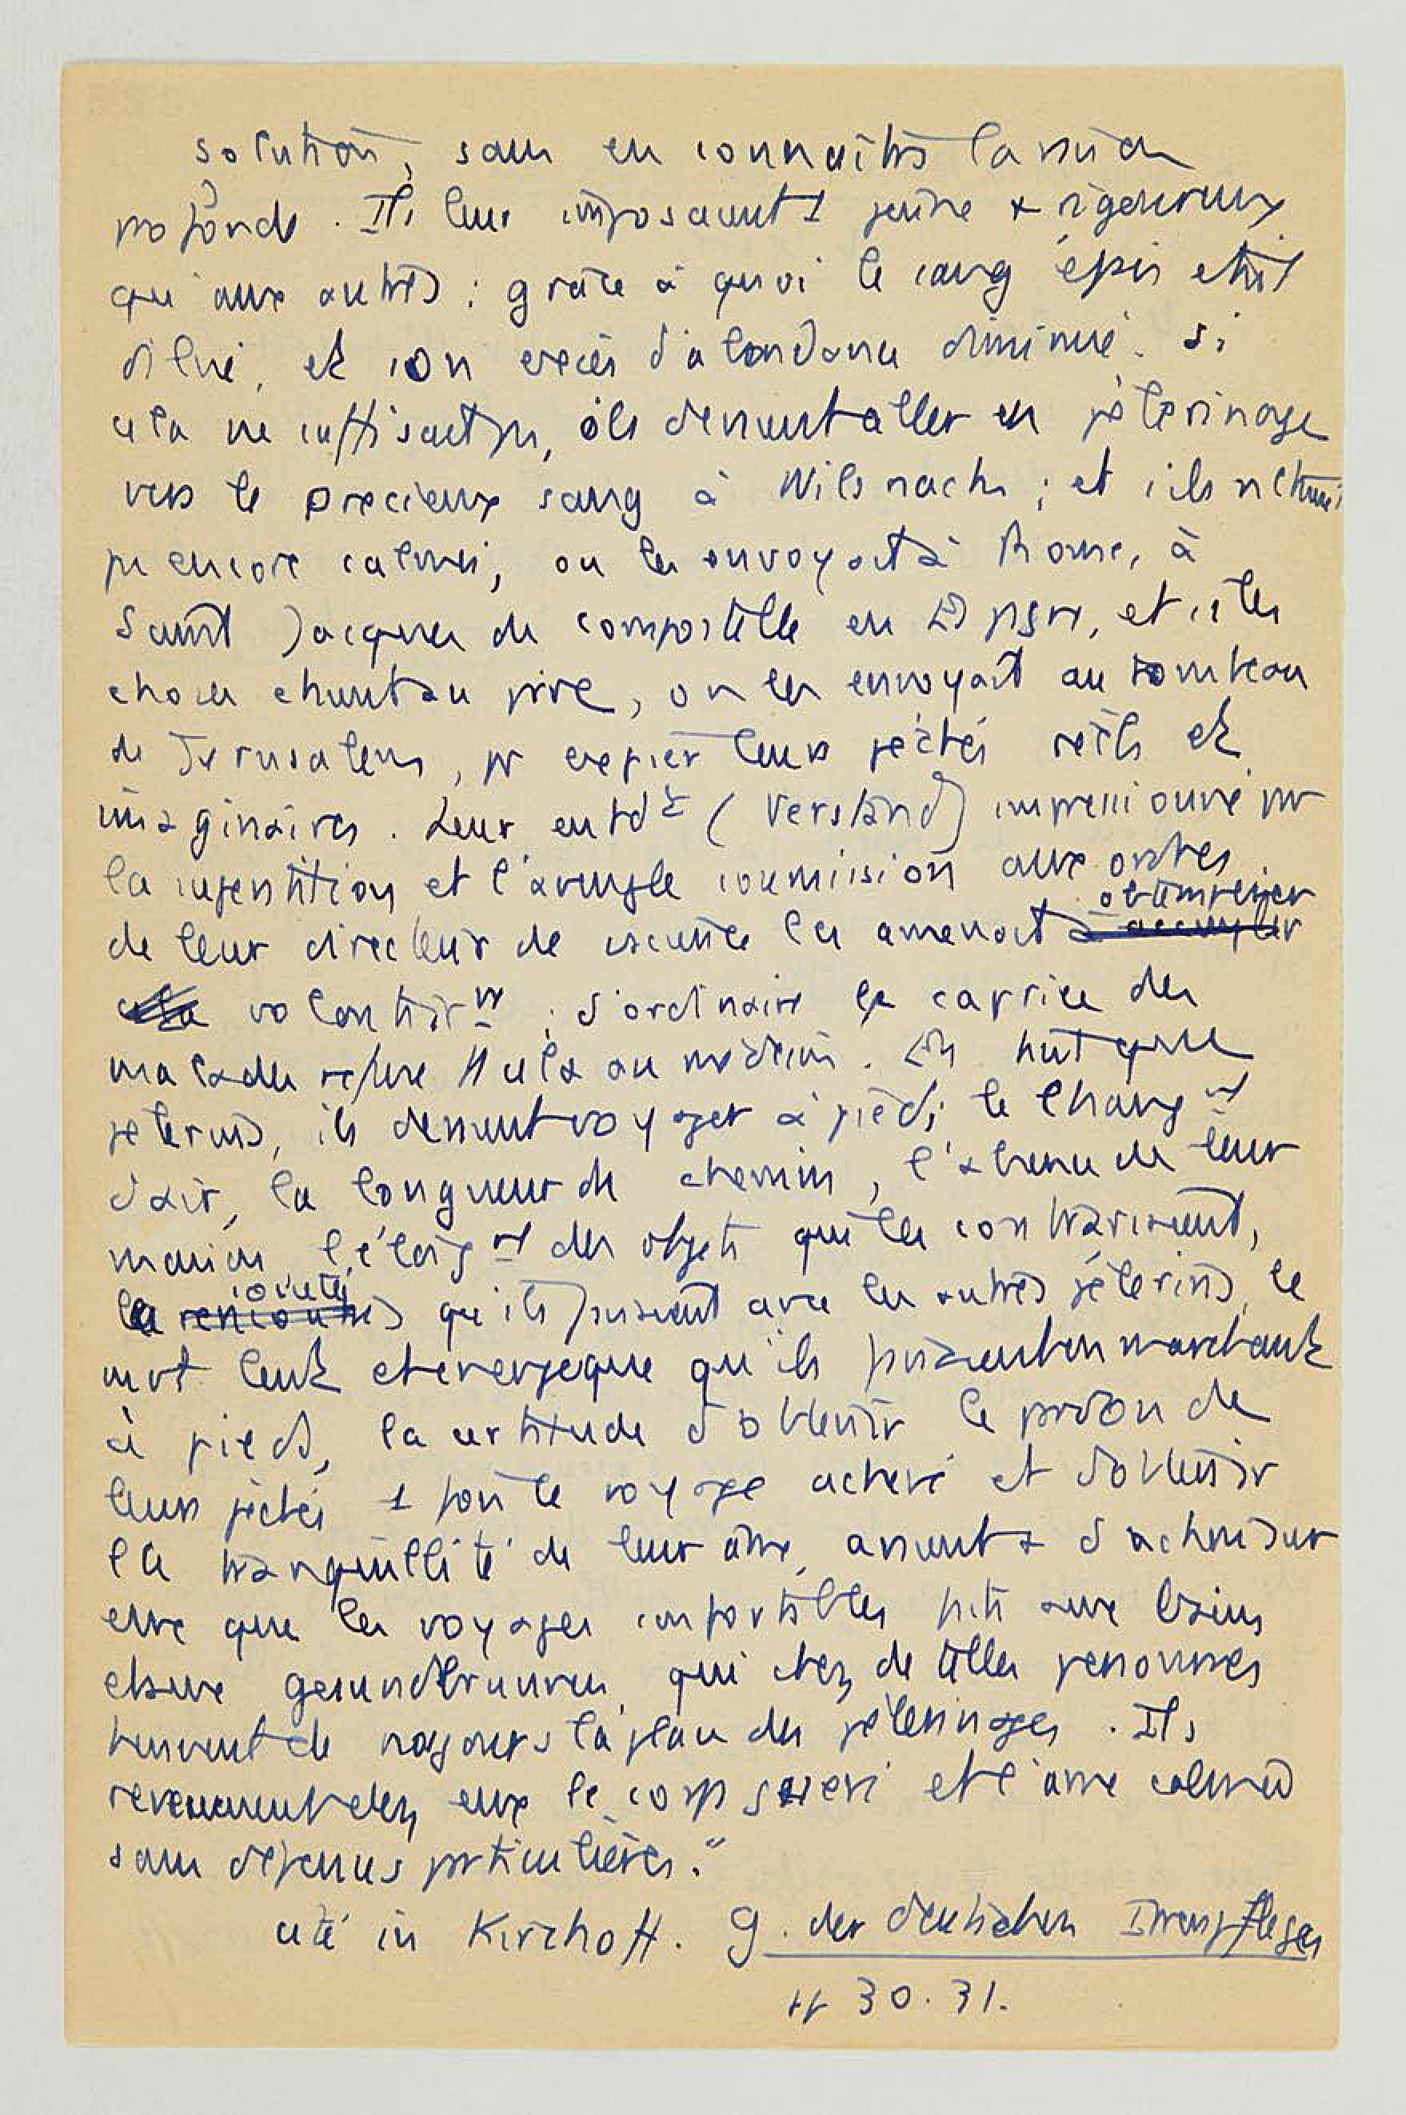 solution, sans en connaître la raison
profonde. Ils leur imposaient 1 jeûne + rigoureux
qu'aux autres : grâce à quoi le sang épais était
dilué, et son excès d'abondance diminué. Si
cela ne suffisait pas, ils devaient aller en pèlerinage
vers le precieux sang à Wilsnach ; et s'ils n'étaient
pas encore calmés, on les envoyait à Rome, à
Saint Jacques de Compostelle en Espgn, et si les
choses étaient au pire, on les envoyait au tombeau
de Jerusalem, pr expier leurs péchés réels et
imaginaires. Leur entdt (Verstand) impressionné par
la superstition et l'aveugle soumission aux ordres
de leur directeur de cscience les amenait à obtempérer
volontairmt ; d'ordinaire le caprice des
malades refuse tt cela au médecin. En tant que
pelerins, ils devaient voyager à pied ; le changt
d'air, la longueur du chemin, l'absence de leur
maison, l'éloigt des objets qui les contrariaient,
la société qu'ils faisaient avec les autres pèlerins, le
mvt lent et energique qu'ils faisaient en marchant
à pieds, la certitude d'obtenir le pardon de
leurs péchés 1 fois le voyage achevé et d'obtenir
la tranquillité de leur âme, avaient + d'action sur
eux que les voyages confortables faits aux bains
et aux gesundbrunnen, qui chez de telles personnes
tiennent de nos jours la place des pèlerinages. Ils
revenaient chez eux le corps gueri et l'ame calmée
sans dépenses particulières."
cité in Kirchoff. G. der deutschen Irrenpfleges
pp 30. 31.